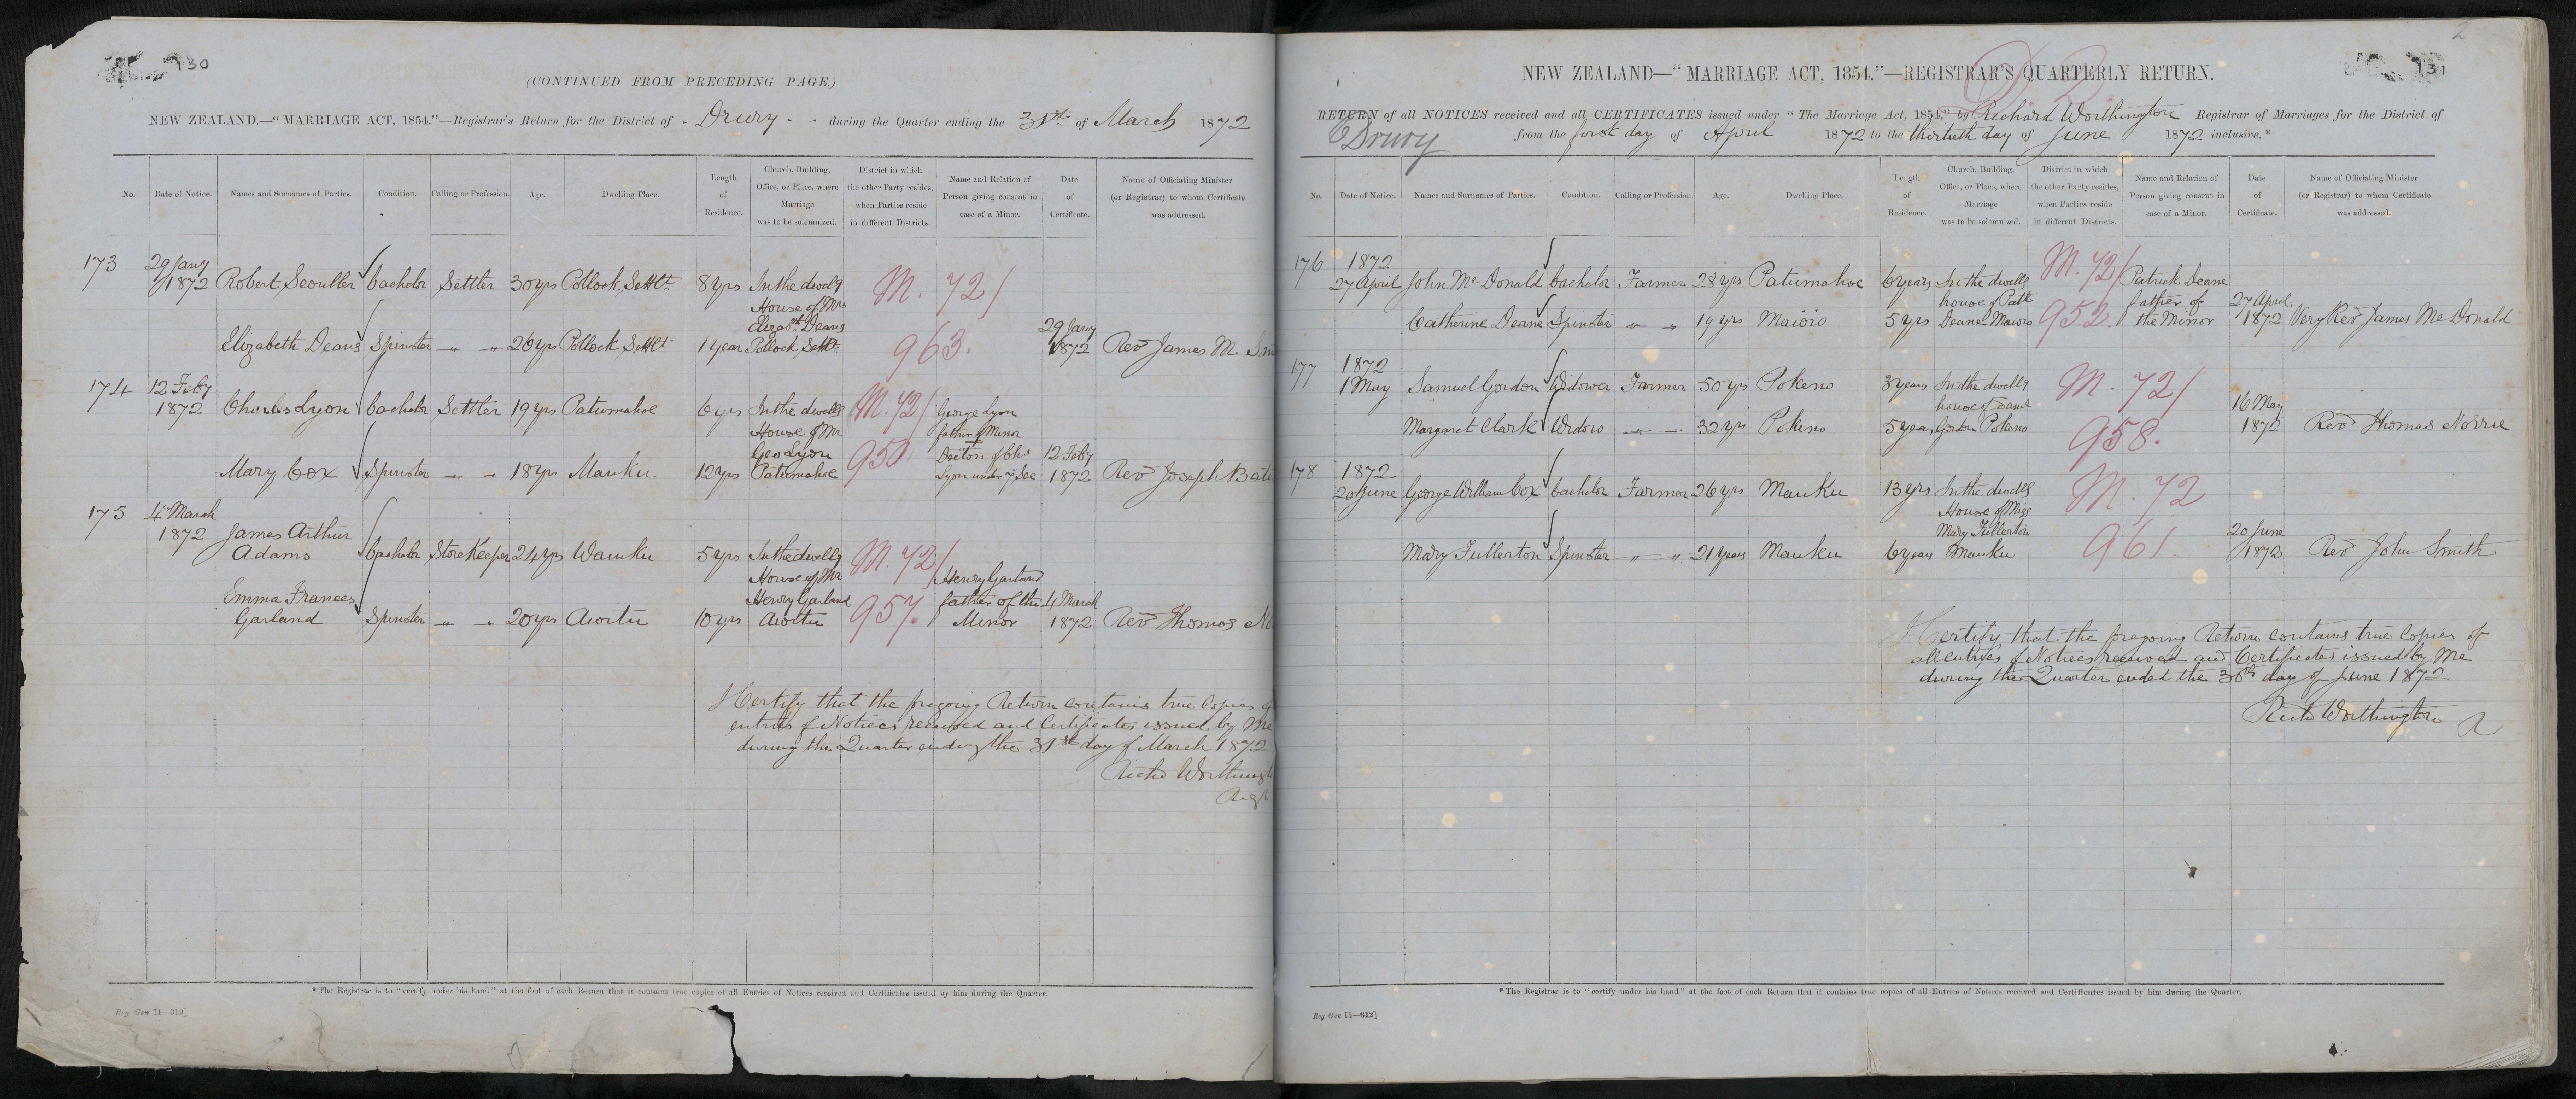 130
(CONTINUED FROM PRECEDING PAGE.)
NEW ZEALAND.—"MARRIAGE ACT, 1854."—Registrar's Return for the District of - Drury - - during the Quarter ending the 31st of March 1872
No. Date of Notice. Names and Surnames of Parties. Condition. Calling or Profession. Age. Dwelling Place. Length of Residence. Church, Building, Office, or Place, where Marriage was to be solemnized. District in which the other Party resides, when Parties reside in different Districts. Name and Relation of Person giving consent in case of a Minor. Date of Certificate. Name of Officiating Minister (or Registrar) to whom Certificate was addressed.
173 29 Jany
1872 Robert Scoullar bachelor Settler 30 yrs Pollock Settlt 8 yrs In the dwellg
House of Mrs
Elizabt Deans
M. 72/
Elizabeth Deans Spinster " " 26 yrs Pollock Settlt 1 year Pollock Settlt 963. 29 Jany
1872 Rev James M
174 12 Feby
1872 Charles Lyon bachelor Settler 19 yrs Patumahoe 6 yrs In the dwellg
House of Mr
Geo Lyon
M. 72/ George Lyon
father of Minor
Mary Cox Spinster " " 18 yrs Mauku 12 yrs Patumahoe 950 Decton of Chs
Lyon under 7 Sec 12 Feby
1872 Rev Joseph Bate
175 4 March
1872 James Arthur
Adams bachelor StoreKeeper 24 yrs Wauku 5 yrs In the dwellg
House of Mr
Henry Garland
M. 72/
Emma Frances
Garland Spinster " " 20 yrs Awitu 10 yrs Awitu 957. Henry Garland
father of the
Minor 4 March
1872 Rev Thomas No
I Certify that the foregoing Return contains true Copies of
entries of Notices received and Certificates issued by Me
during the Quarter ending the 31st day of March 1872
Richd Worthingt
*The Registrar is to "certify under his hand" at the foot of each Return that it contains true copies of all Entries of Notices received and Certificates issued by him during the Quarter.
Reg Gen 11—312]
2
131
NEW ZEALAND—"MARRIAGE ACT, 1854."—REGISTRAR'S QUARTERLY RETURN.
RETURN of all NOTICES received and all CERTIFICATES issued under "The Marriage Act, 1854," by Richard Worthington Registrar of Marriages for the District of
Drury from the first day of April 1872 to the thirtieth day of June 1872 inclusive.*
No. Date of Notice. Names and Surnames of Parties. Condition. Calling or Profession. Age. Dwelling Place. Length of Residence. Church, Building, Office, or Place, where Marriage was to be solemnized. District in which the other Party resides, when Parties reside in different Districts. Name and Relation of Person giving consent in case of a Minor. Date of Certificate. Name of Officiating Minister (or Registrar) to whom Certificate was addressed.
176 1872
27 April John McDonald bachelor Farmer 28 yrs Patumahoe 6 years In the dwellg
house of Patk
M. 72/ Patrick Deane
father of
Catherine Deane Spinster " " 19 yrs Maioio 5 yrs Deane Maioio 952. the Minor 27 April
1872 Very Rev James McDonald
177 1872
1 May Samuel Gordon Widower Farmer 50 yrs Pokeno 8 years In the dwellg
house of Saml
M. 72/
Margaret Clark Widow " " 32 yrs Pokeno 5 years Gordon Pokeno 958. 16 May
1872 Rev Thomas Norrie
178 1872
20 June George William Cox bachelor Farmer 26 yrs Mauku 13 yrs In the dwellg
House of Miss
Mary Fullerton
M. 72
Mary Fullerton Spinster " " 21 years Mauku 6 years Mauku 961. 20 June
1872 Rev John Smith
I Certify that the foregoing Return contains true Copies of
all entries of Notices received and Certificates issued by Me
during the Quarter ended the 30th day of June 1872
Richd Worthington
*The Registrar is to "certify under his hand" at the foot of each Return that it contains true copies of all Entries of Notices received and Certificates issued by him during the Quarter.
Reg Gen 11—312]